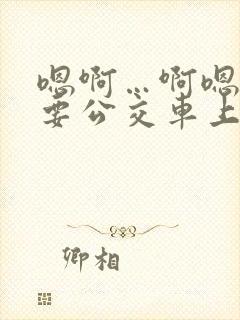 嗯啊…啊嗯
要公交车上
卿相